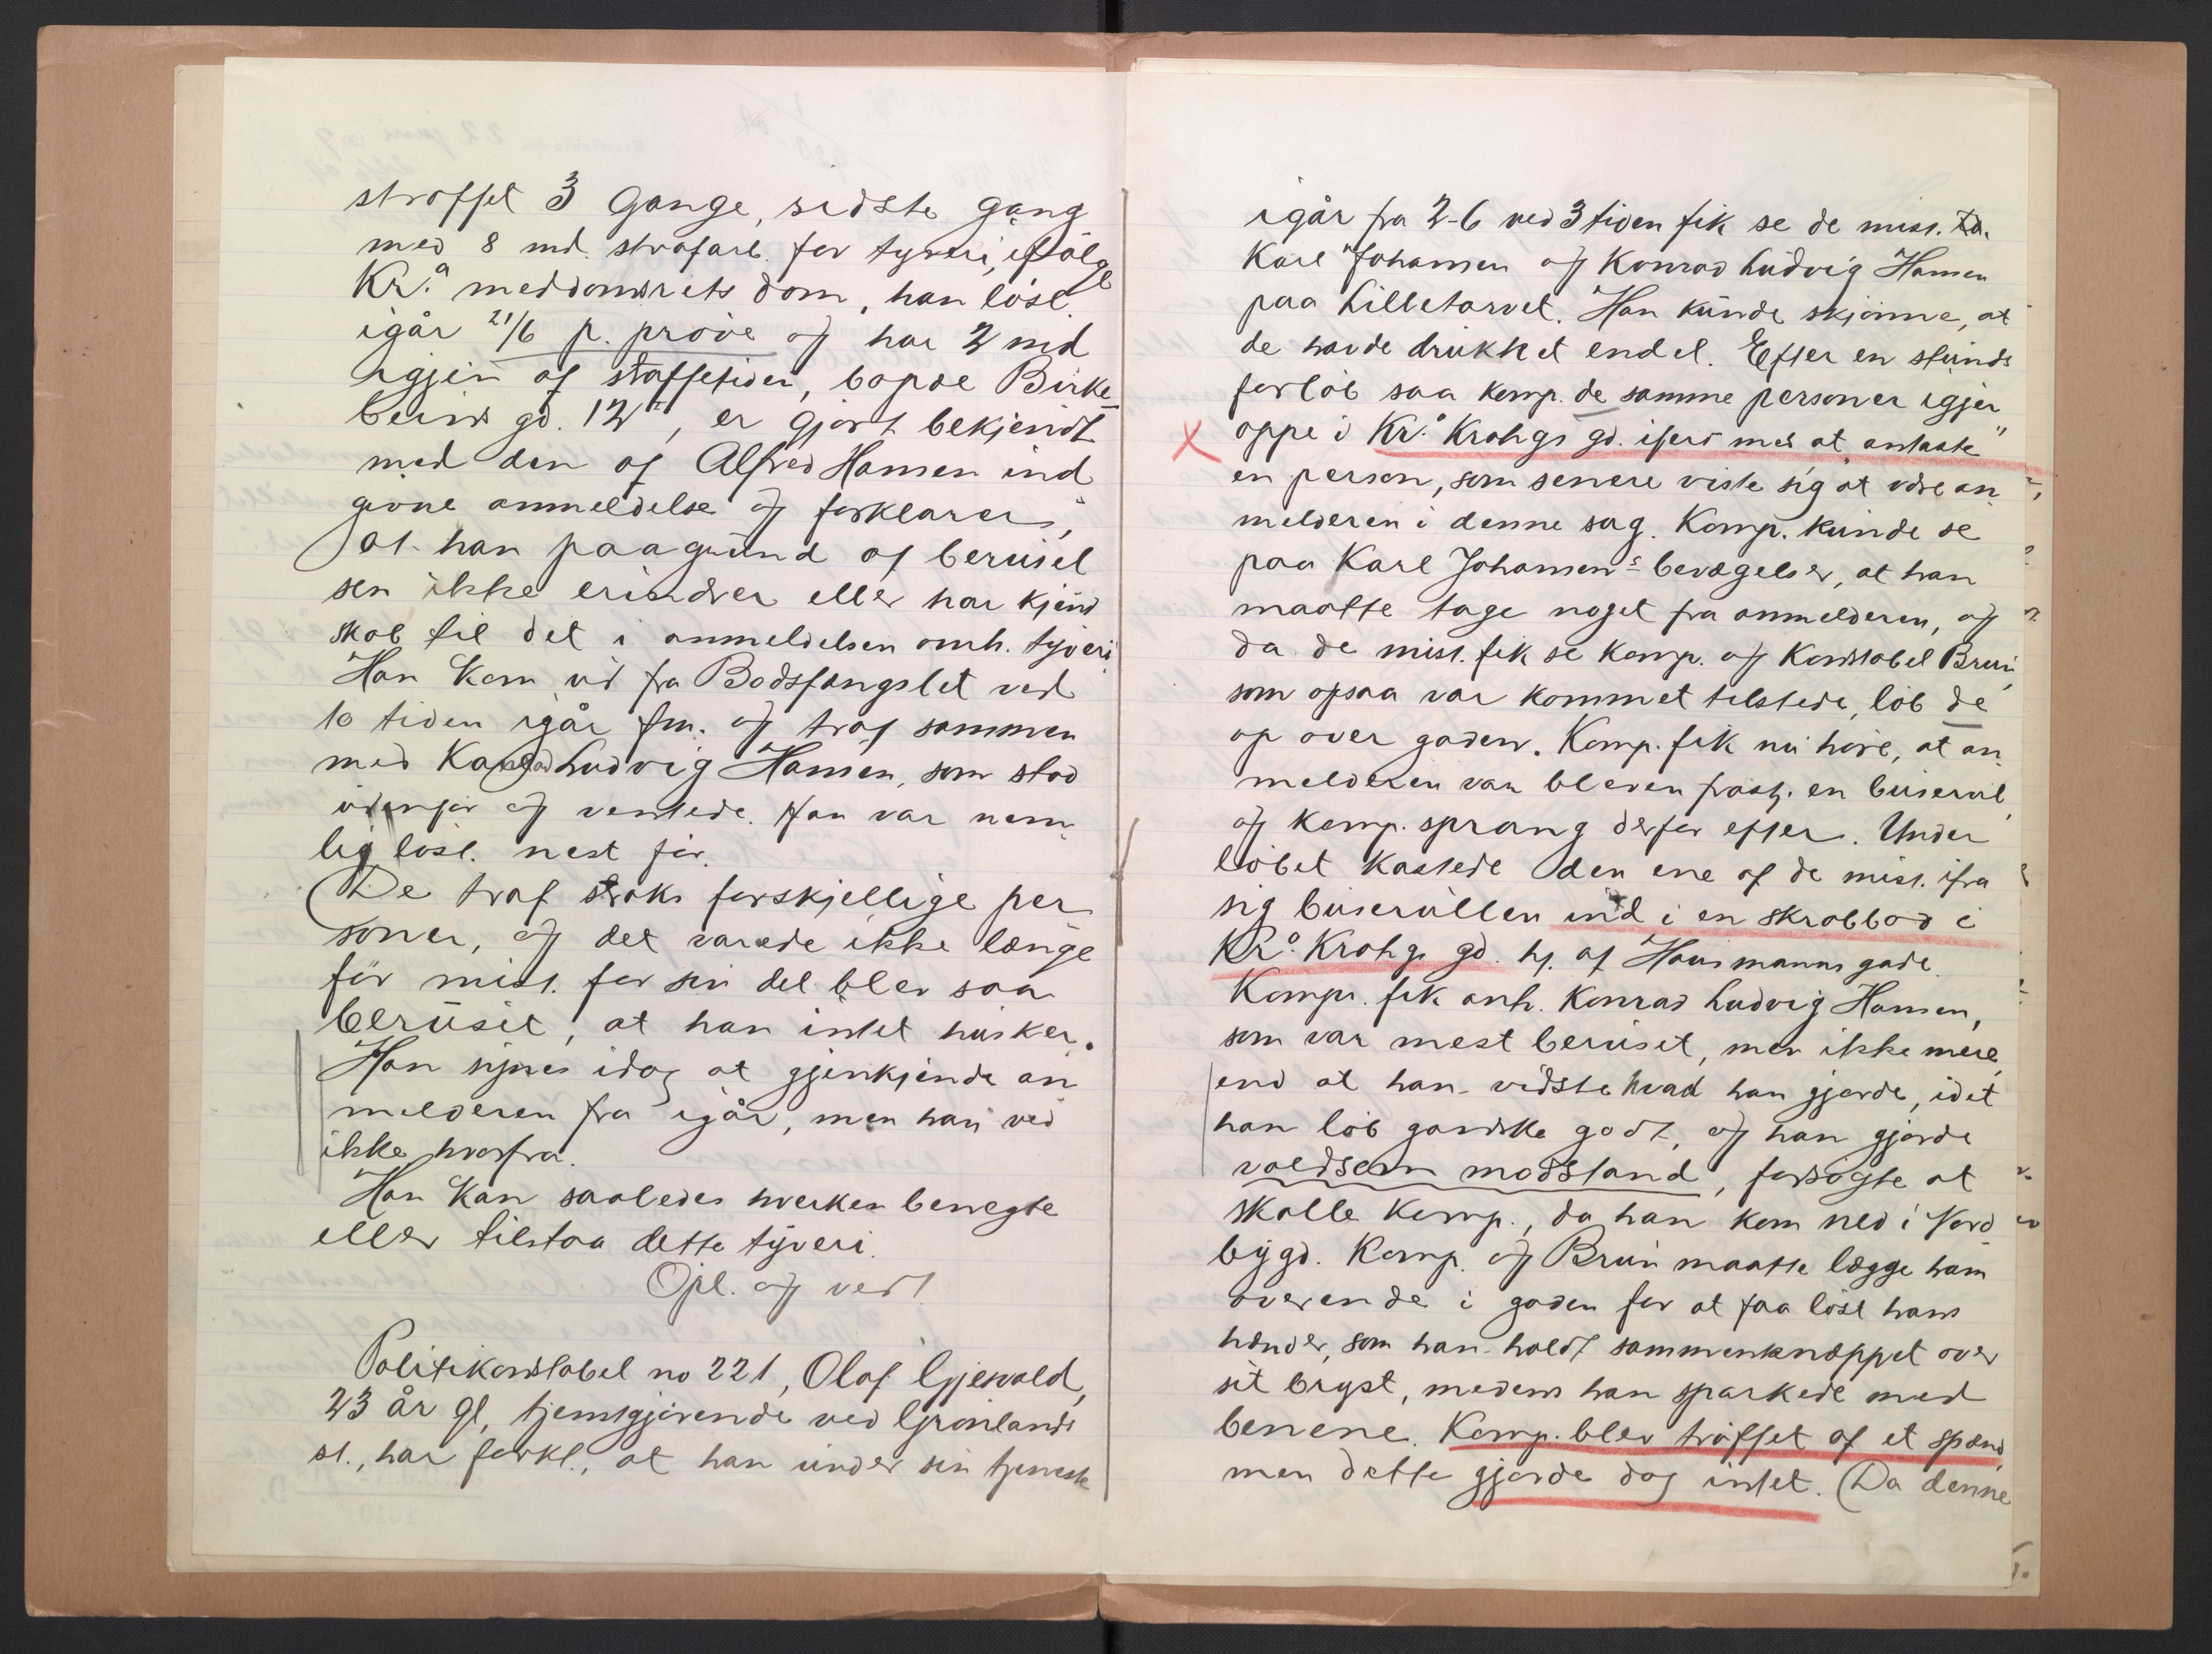 straffet 3 Gange, sidste gang
med 8 md. strafarb. for tyveri, ifølge
Kr.a meddomsrets dom, han løsl.
igår 21/6 p. prøve og har 2 md
igjen af straffetiden, bopæl Birke
beins gd. 12, er gjort bekjendt
med den af Alfred Hansen ind
givne anmeldelse og forklarer,
at han paagrund af berusel
sen ikke erindrer eller har kjend
skab til det i anmeldelsen omh. tyveri
Han kom ud fra Bodsfængslet ved
10 tiden igår fm. og traf sammen
med Konrad Ludvig Hansen, som stod
udenfor og ventede. Han var nem
lig løsl. nest før.
De traf straks forskjellige per
soner, og det varede ikke længe
før mist. for sin del blev saa
beruset, at han intet husker.
Han synes idag at gjenkjende an
melderen fra igår, men han ved
ikke hvorfra.
Han kan saaledes hverken benegte
eller tilstaa dette tyveri.
Opl. og vedt.
Politikonstabel no 221, Olaf Gjesvold,
23 år gl, tjenstgjørende ved Grønlands
st., har forkl., at han under sin tjeneste
igår fra 2-6 ved 3 tiden fik se de mist.
Karl Johansen og Konrad Ludvig Hansen
paa Lilletorvet. Han kunde skjønne, at
de havde drukket endel. Efter en stunds
forløb saa komp. de samme personer igjen
oppe i Kr. Krohgs gd. ifærd med at antaste
en person, som senere viste sig at være an
melderen i denne sag. Komp. kunde se
paa Karl Johansens bevægelser, at han
maatte tage noget fra anmelderen, og
da de mist. fik se komp. og Konstabel Brun,
som ogsaa var kommet tilstede, løb de
op over gaden. Komp. fik nu høre, at an
melderen var bleven frastj. en buserul,
og komp. sprang derfor efter. Under
løbet kastede den ene af de mist. ifra
sig buserullen ind i en skrabbod i
Kr. Krohgs gd. hj. af Hausmanns gade.
Komp. fik anh. Konrad Ludvig Hansen,
som var mest beruset, men ikke mere
end at han vidste hvad han gjorde, idet
han løb ganske godt, og han gjorde
voldsom modstand, forsøgte at
skalle komp., da han kom ned i Nord
bygd. Komp. og Brun maatte lægge ham
overende i gaden for at faa løst hans
hænder, som han holdt sammenknappet over
sit bryst, medens han sparkede med
benene. Komp. blev truffet af et spænd,
men dette gjorde dog intet. (Da denne